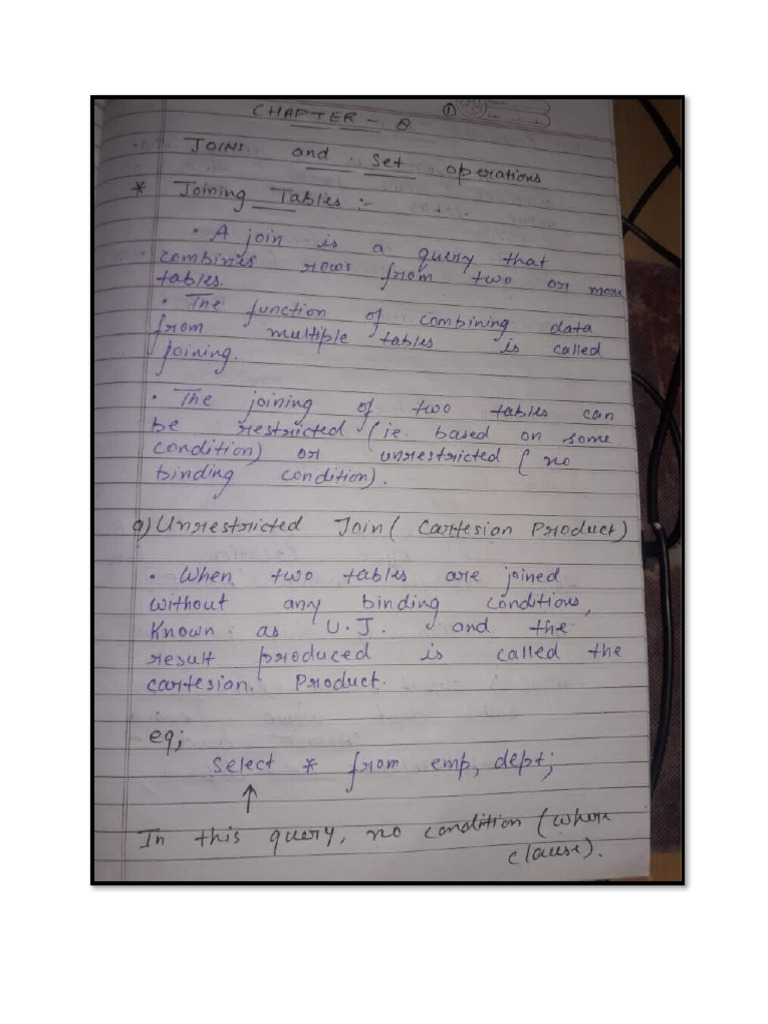 CHAPTER - 8
①
JOINS and Set operations
* Joining Tables :-
• A join is a query that
combines rows from two or more
tables.
• The function of combining data
from multiple tables is called
joining.
• The joining of two tables can
be restricted (ie. based on some
condition) or unrestricted ( no
binding condition).
a) Unrestricted Join ( Cartesian Product)
• When two tables are joined
without any binding conditions,
Known as U.J. and the
result produced is called the
cartesian Product.
eg;
Select * from emp, dept;
↑
In this query, no condition (where
clause).